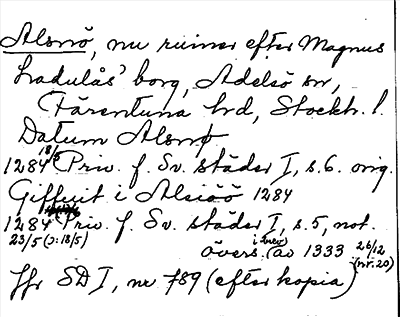 Alsnö, nu ruiner efter Magnus
Ladulås' borg, Adelsö sn,
Färentuna hd, Stockh. l.
Datum Alsnø
1284 18/5 Priv. f. Sv. städer I, s. 6. orig.
Giffuit i Alsiöö 1284
1284 Priv. f. Sv. städer I, s. 5, not.
23/5 (ɔ: 18/5)
övers. i brev av 1333 26/12
(nr. 20)
Jfr SD I, nr 789 (efter kopia)